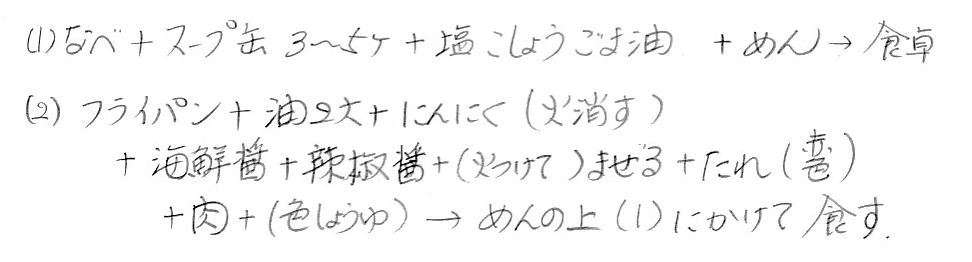 (1) なべ + スープ缶 3〜5ケ + 塩 こしょう ごま油 + めん → 食卓
(2) フライパン + 油2大 + にんにく (火消す)
+ 海鮮醤 + 辣椒醤 + (火つけて) まぜる + たれ ( )
+ 肉 + (色しょうゆ) → めんの上 (1) にかけて 食す.